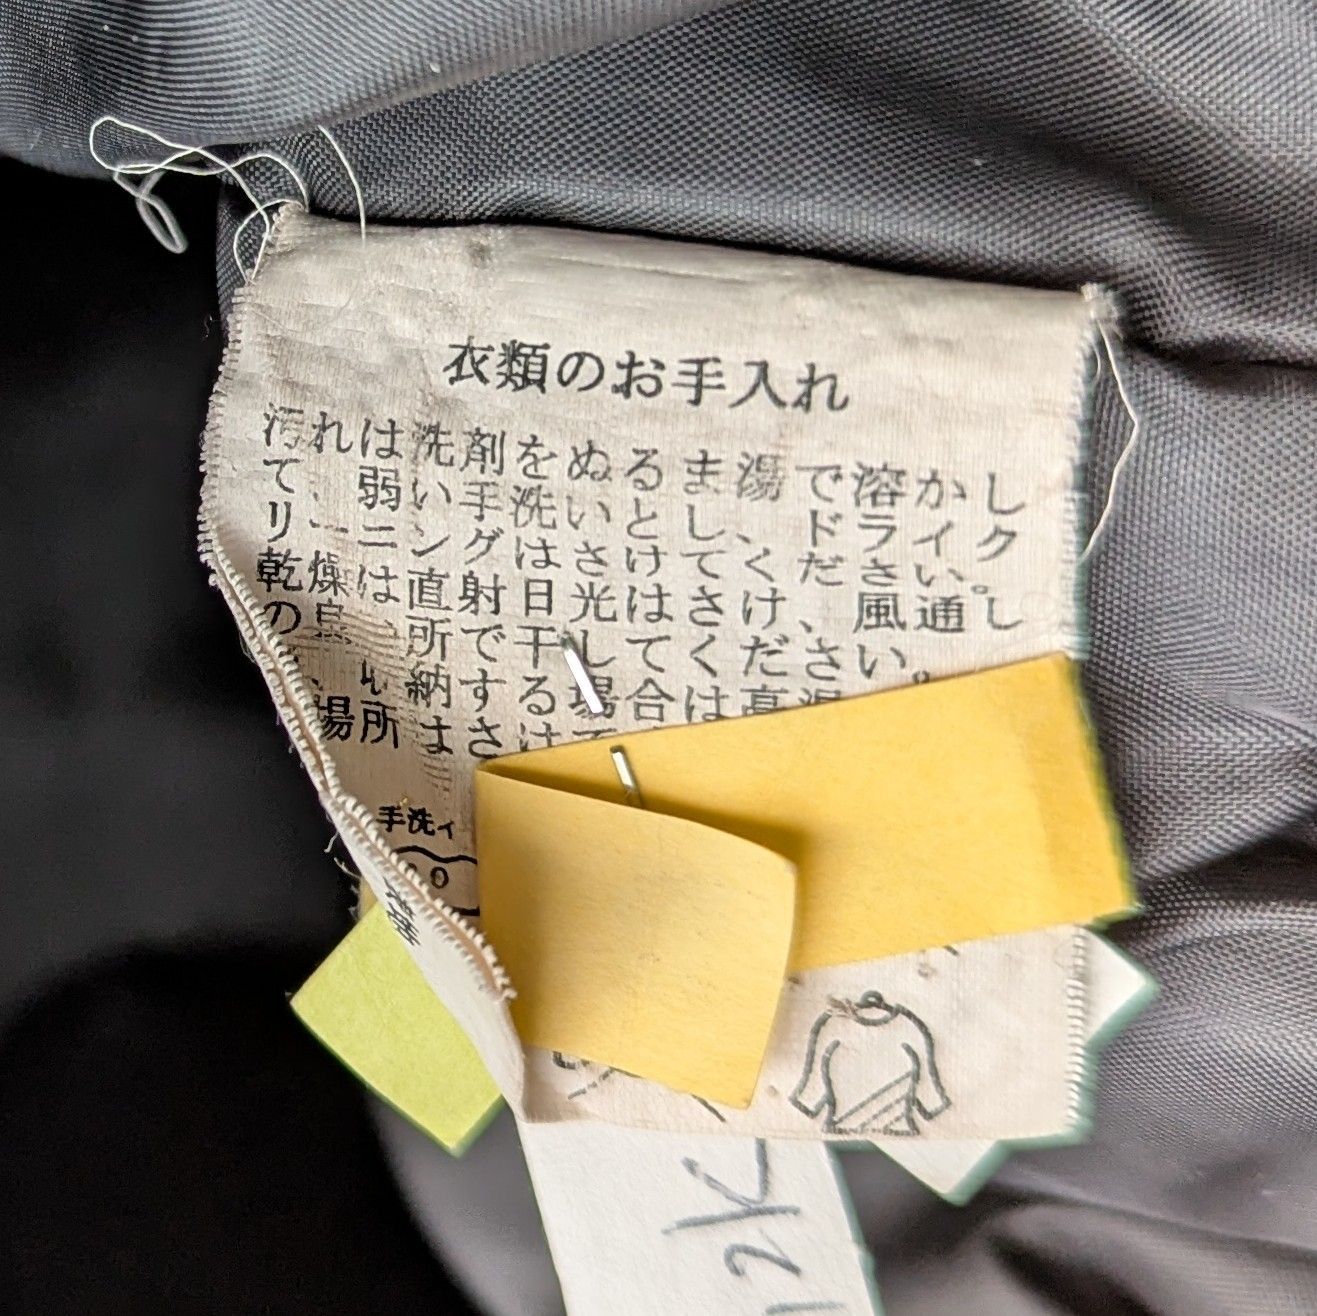 衣類のお手入れ
汚れは洗剤をぬるま湯で溶かし
て、弱い手洗いとし、ドライク
リーニングはさけてください。
乾燥は直射日光はさけ、風通し
の良い所で干してください。
納する場合は高温
場所はさけて
手洗イ
12K